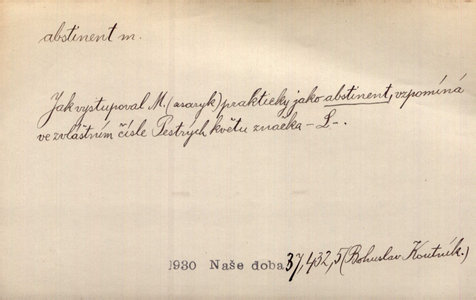 abstinent m.
Jak vystupoval M.(asaryk) prakticky jako abstinent, vzpomíná
ve zvláštním čísle Pestrých květů značka -L-.
1930 Naše doba 37,432,5 (Bohuslav Koutník.)